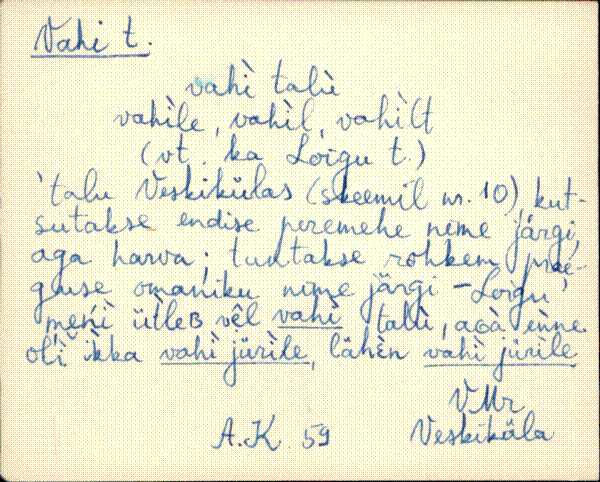 Vahi t.
vahì talù
vahìle, vahìl, vahìlt
(vt. ka Loigu t.)
'talu Veskikülas (skeemil nr. 10), kut-
sutakse endise peremehe nime järgi,
aga harva; tuntakse rohkem prae-
guse omaniku nime järgi - Loigu'
meńì ütleB vêl vahì talù, aGà enne
oĺì ìkka vahì jürile, lähèn vahì jürile
VMr
A.K. 59 Veskiküla